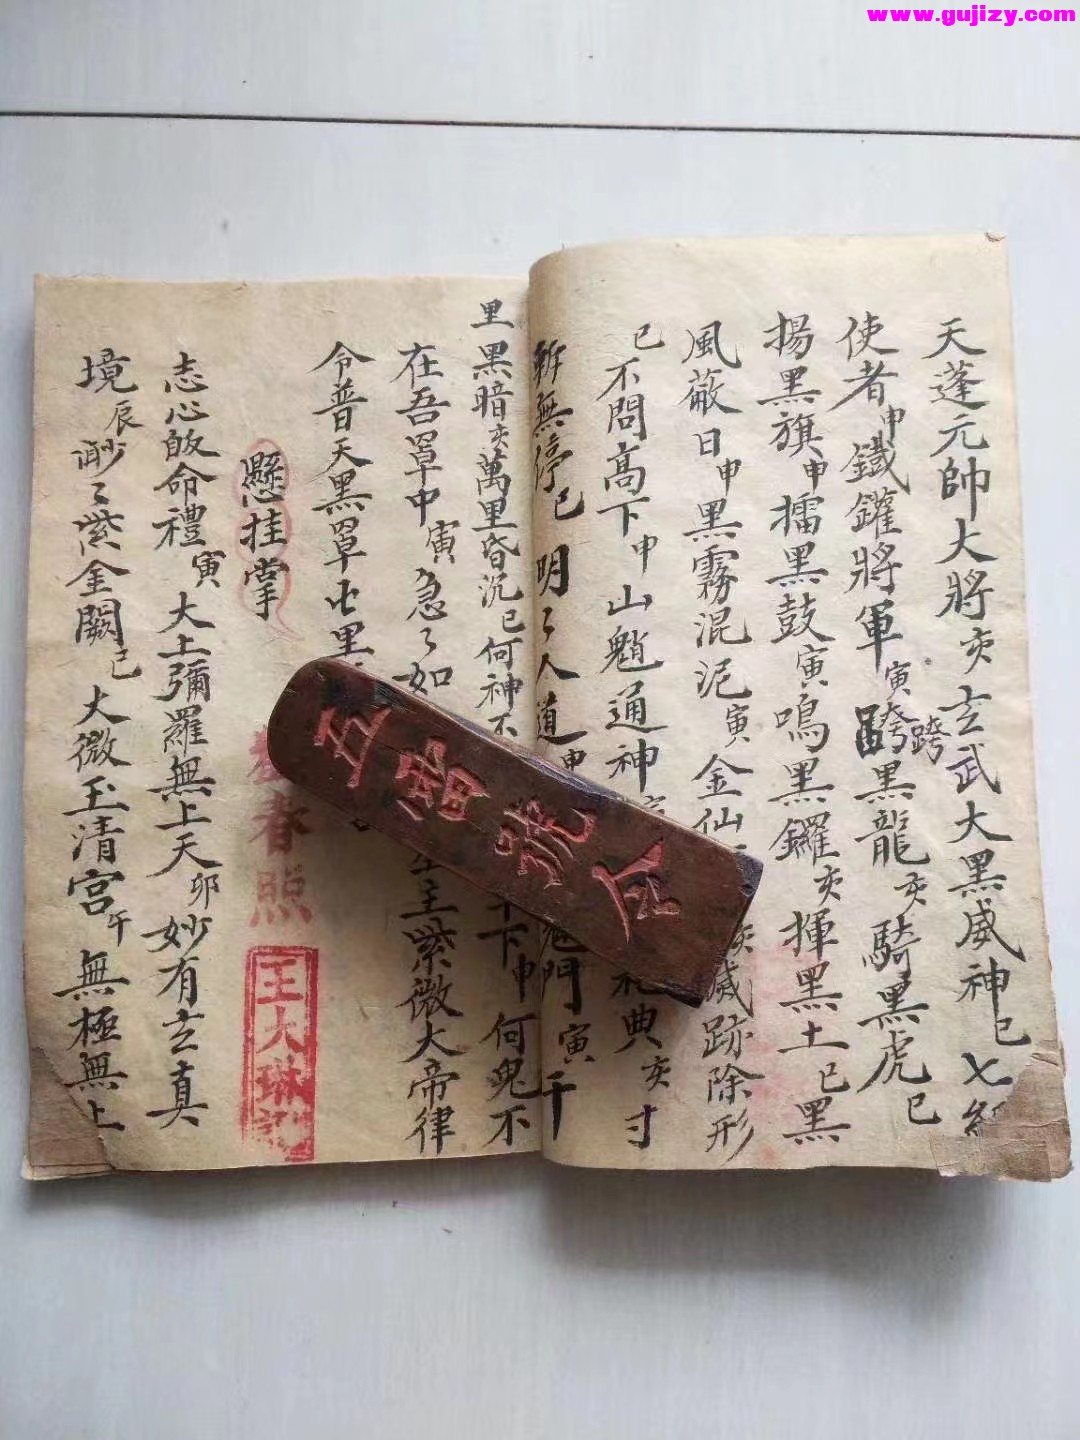 www.gujizy.com
天蓬元帥大將亥玄武大黑威神巳七
使者申鐵鑵將軍寅跨跨黑龍亥騎黑虎巳
揚黑旗申擂黑鼓寅鳴黑鑼亥揮黑土巳黑
風蔽日申黑霧混沱寅金仙
亥滅跡除形
巳不問高下申山魈通神
典亥寸
斬無停巳明々人道申
門寅千
里黑暗亥萬里昏沉巳何神不
下申何鬼不
在吾罩中寅急々如
主紫微大帝律
令普天黑罩
懸挂掌
春照
王大琳記
志心皈命禮寅大上彌羅無上天卯妙有玄真
境辰渺々紫金闕巳大微玉清宮午無極無上
五雷號令